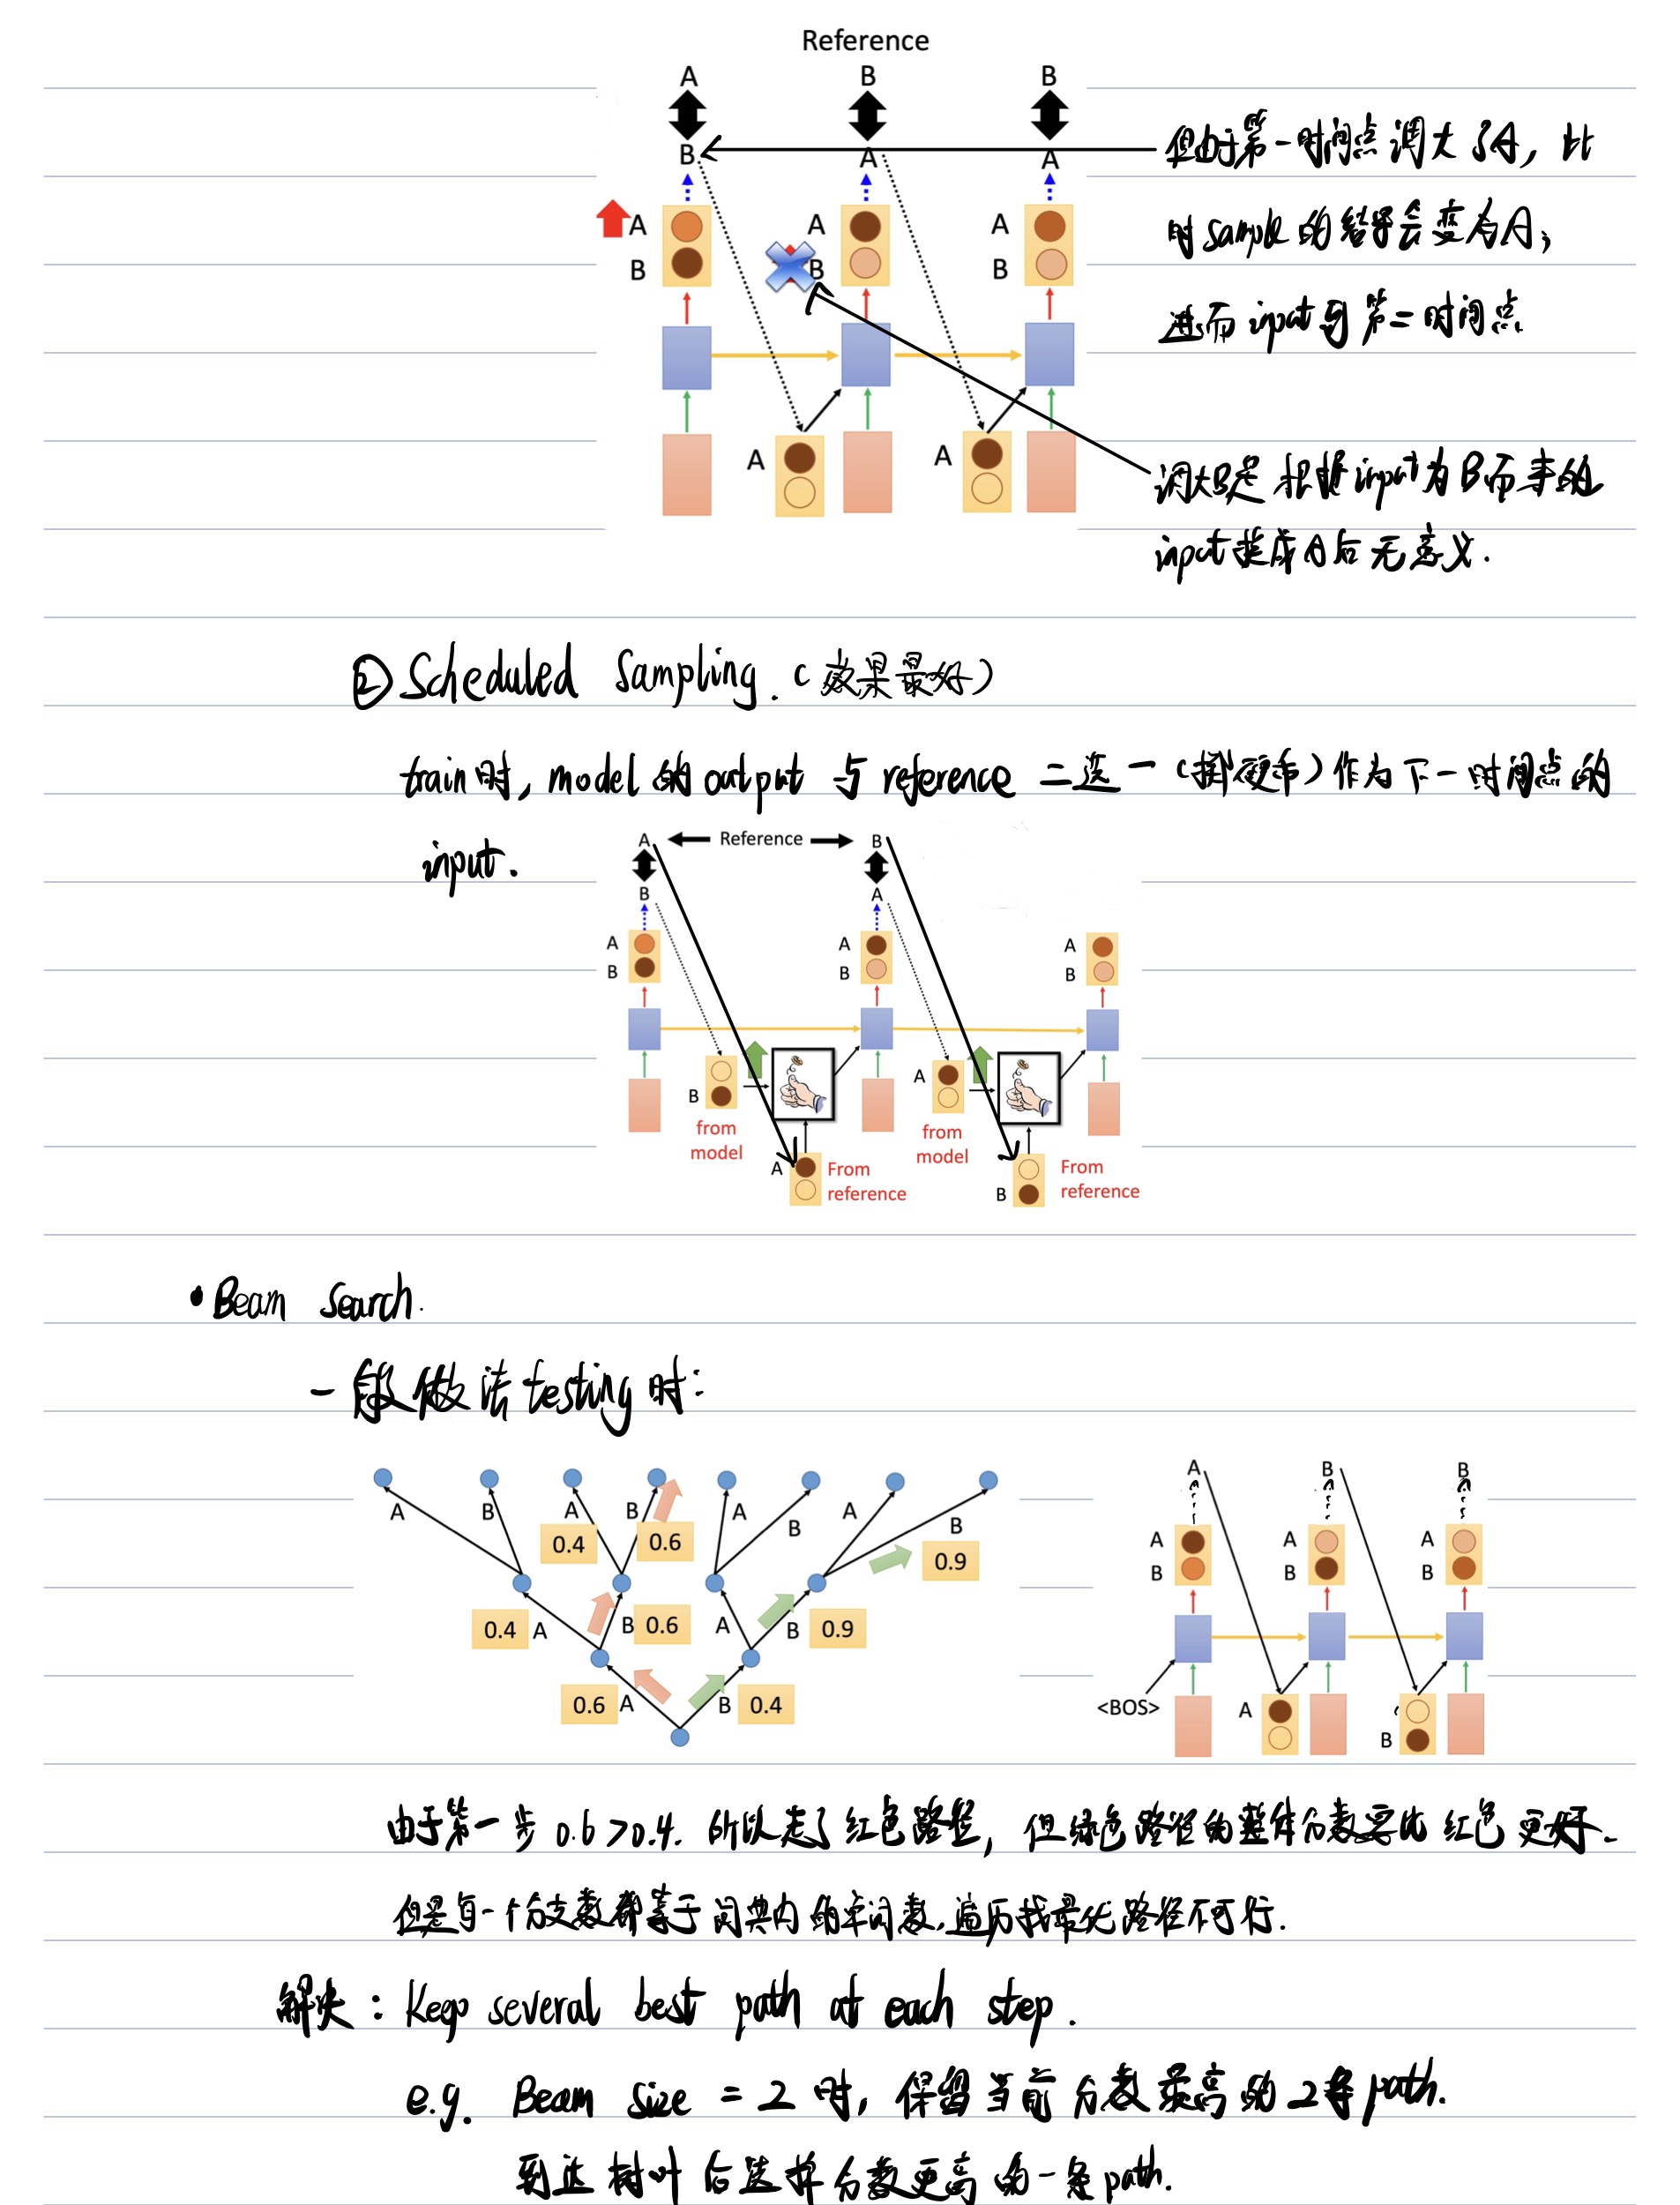 Reference
A B B
B A A
但由于第一时间点调大了A，此
时sample的结果会变为A；
进而input到第二时间点
A A A
B B B
A A
调大B是根据input为B而来的
input换成A后无意义.
② Scheduled Sampling.（效果最好）
train时, model的output与reference二选一（掷硬币）作为下一时间点的
input.
A Reference B
B A
A A A
B B B
B A
from model
from model
A From reference
B From reference
• Beam Search.
一般做法testing时：
A B A B A B A B
0.4 0.6 0.9
0.4 A B 0.6 A B 0.9
0.6 A B 0.4
A B B
A A A
B B B
<BOS> A B
由于第一步0.6>0.4. 所以走了红色路径, 但绿色路径的整体分数要比红色更好.
但是每一个分支数都等于词典内的单词数, 遍历找最优路径不可行.
解决：Keep several best path at each step.
e.g. Beam size = 2 时, 保留当前分数最高的2条path.
到达树叶后选择分数更高的一条path.